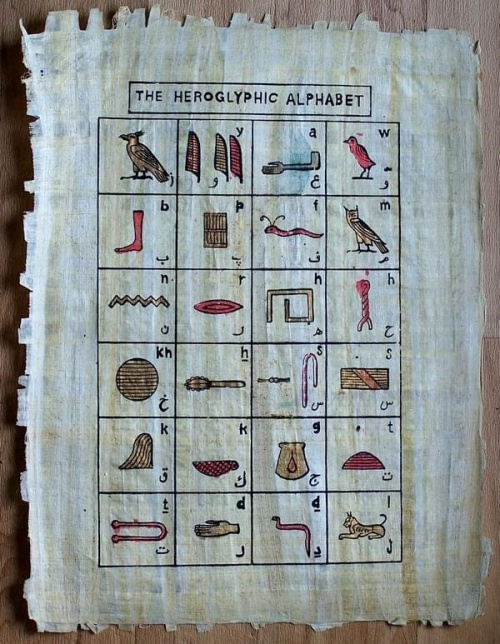 THE HEROGLYPHIC ALPHABET
y a w
و ع و
b p f m
ب پ ف م
n r h h
ن ر ه ح
kh ẖ s s
خ س س
k k g t
ق ك ج ت
ṯ d ḏ l
ت د د ل